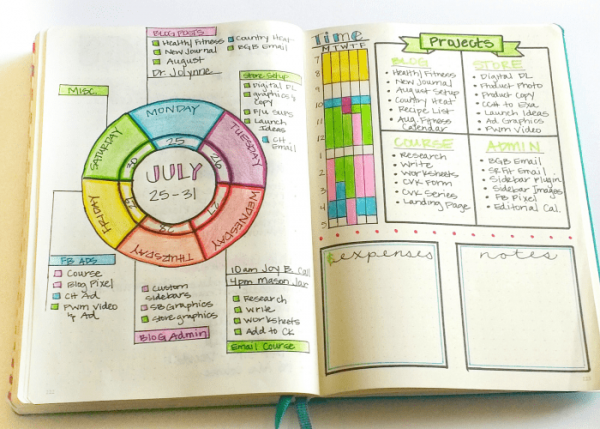 BLOG POSTS
Health/Fitness
New Journal
August
Dr. Jolynne
Country Heat
BGB Email
MISC.
Store Setup
Digital DL
graphics &
Copy
P/U SUPS
Launch
Ideas
CH
Email
MONDAY
25
TUESDAY
26
WEDNESDAY
27
THURSDAY
28
FRIDAY
29
SATURDAY
30
JULY
25-31
FB ADS
Course
Blog Pixel
CH Ad
PWM Video
& Ad
Custom
sidebars
SB Graphics
Store graphics
Blog Admin
10am Joy B. Call
4pm Mason Jar
Research
Write
Worksheets
Add to CK
Email Course
Time
MTWTF
7
8
9
10
11
12
1
2
3
4
5
Projects
BLOG
Health/Fitness
New Journal
August Setup
Country Heat
Recipe List
Aug. Fitness
Calendar
STORE
Digital DL
Product Photo
Product Copy
CCH to Exa
Launch Ideas
Ad Graphics
PWM Video
COURSE
Research
Write
Worksheets
CVK Form
CVK Series
Landing Page
ADMIN
BGB Email
SRFit Email
Sidebar Plugin
Sidebar Images
FB Pixel
Editorial Cal.
$expenses
notes